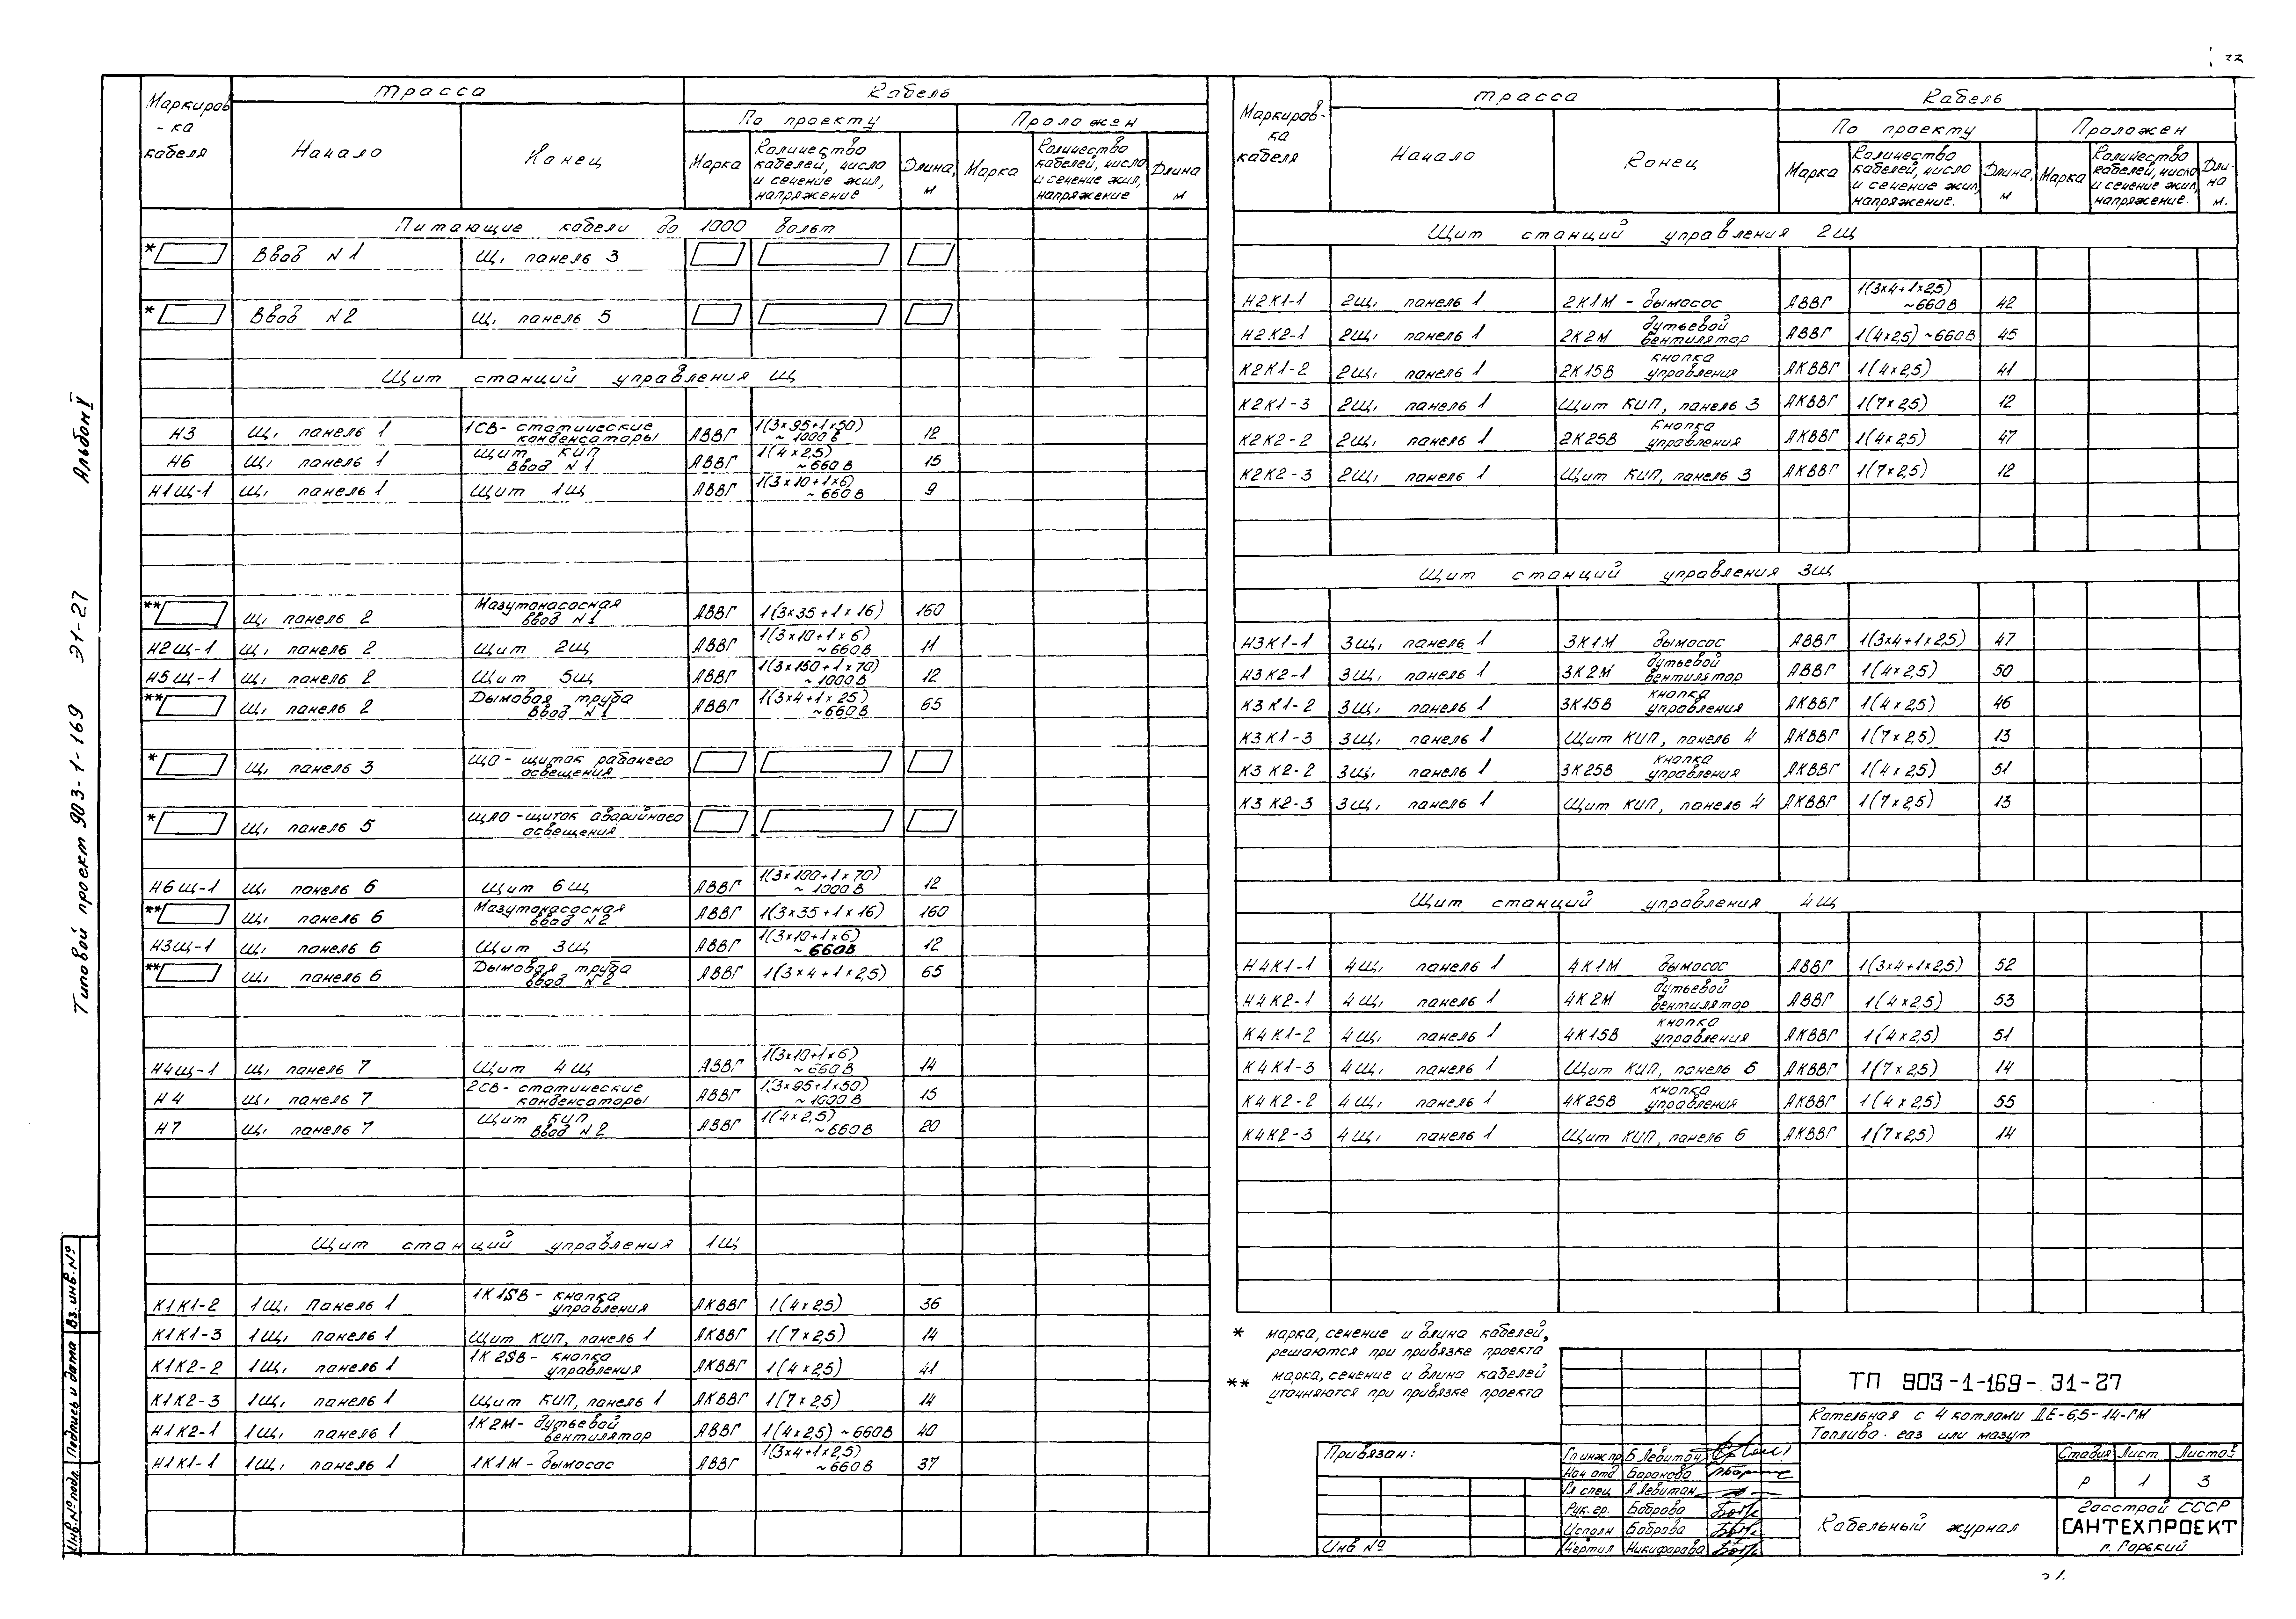 Альбом V
Типовой проект 903-1-169 Э1-27
Инв.№подл. Подпись и дата Вз.инв.№
Маркиров-ка кабеля | Трасса | Кабель
Начало | Конец | По проекту | Проложен
Марка | Количество кабелей, число и сечение жил, напряжение | Длина, м | Марка | Количество кабелей, число и сечение жил, напряжение | Длина м
Питающие кабели до 1000 вольт
* Ввод N1 Щ, панель 3
* Ввод N2 Щ, панель 5
Щит станций управления Щ
Н3 Щ, панель 1 1СВ- статические конденсаторы АВВГ 1(3×95+1×50) ~1000В 12
Н6 Щ, панель 1 Щит КИП Ввод N1 АВВГ 1(4×2,5) ~660В 15
Н1Щ-1 Щ, панель 1 Щит 1Щ АВВГ 1(3×10+1×6) ~660В 9
** Щ, панель 2 Мазутонасосная ввод N1 АВВГ 1(3×35+1×16) 160
Н2Щ-1 Щ, панель 2 Щит 2Щ АВВГ 1(3×10+1×6) ~660В 11
Н5Щ-1 Щ, панель 2 Щит 5Щ АВВГ 1(3×150+1×70) ~1000В 12
** Щ, панель 2 Дымовая труба Ввод N1 АВВГ 1(3×4+1×25) ~660В 65
* Щ, панель 3 ЩО - щиток рабочего освещения
* Щ, панель 5 ЩАО - щиток аварийного освещения
Н6Щ-1 Щ, панель 6 Щит 6Щ АВВГ 1(3×100+1×70) ~1000В 12
** Щ, панель 6 Мазутонасосная ввод N2 АВВГ 1(3×35+1×16) 160
Н3Щ-1 Щ, панель 6 Щит 3Щ АВВГ 1(3×10+1×6) ~660В 12
** Щ, панель 6 Дымовая труба ввод N2 АВВГ 1(3×4+1×2,5) 65
Н4Щ-1 Щ, панель 7 Щит 4Щ АВВГ 1(3×10+1×6) ~660В 14
Н4 Щ, панель 7 2СВ- статические конденсаторы АВВГ 1(3×95+1×50) ~1000В 15
Н7 Щ, панель 7 Щит КИП Ввод N2 АВВГ 1(4×2,5) ~660В 20
Щит станций управления 1Щ
К1К1-2 1Щ, Панель 1 1К1SВ - кнопка управления АКВВГ 1(4×2,5) 36
К1К1-3 1Щ, панель 1 Щит КИП, панель 1 АКВВГ 1(7×2,5) 14
К1К2-2 1Щ, панель 1 1К2SВ - кнопка управления АКВВГ 1(4×2,5) 41
К1К2-3 1Щ, панель 1 Щит КИП, панель 1 АКВВГ 1(7×2,5) 14
Н1К2-1 1Щ, панель 1 1К2М- дутьевой вентилятор АВВГ 1(4×2,5) ~660В 40
Н1К1-1 1Щ, панель 1 1К1М - дымосос АВВГ 1(3×4+1×2,5) ~660В 37
Маркиров-ка кабеля | Трасса | Кабель
Начало | Конец | По проекту | Проложен
Марка | Количество кабелей, число и сечение жил, напряжение. | Длина, м | Марка | Количество кабелей, число и сечение жил, напряжение. | Дли-на м.
Щит станций управления 2Щ
Н2К1-1 2Щ, панель 1 2К1М - дымосос АВВГ 1(3×4+1×2,5) ~660В 42
Н2К2-1 2Щ, панель 1 2К2М дутьевой вентилятор АВВГ 1(4×2,5) ~660В 45
К2К1-2 2Щ, панель 1 2К1SВ кнопка управления АКВВГ 1(4×2,5) 41
К2К1-3 2Щ, панель 1 Щит КИП, панель 3 АКВВГ 1(7×2,5) 12
К2К2-2 2Щ, панель 1 2К2SВ Кнопка управления АКВВГ 1(4×2,5) 47
К2К2-3 2Щ, панель 1 Щит КИП, панель 3 АКВВГ 1(7×2,5) 12
Щит станций управления 3Щ
Н3К1-1 3Щ, панель 1 3К1М дымосос АВВГ 1(3×4+1×2,5) 47
Н3К2-1 3Щ, панель 1 3К2М дутьевой вентилятор АВВГ 1(4×2,5) 50
К3К1-2 3Щ, панель 1 3К1SВ кнопка управления АКВВГ 1(4×2,5) 46
К3К1-3 3Щ, панель 1 Щит КИП, панель 4 АКВВГ 1(7×2,5) 13
К3К2-2 3Щ, панель 1 3К2SВ кнопка управления АКВВГ 1(4×2,5) 51
К3К2-3 3Щ, панель 1 Щит КИП, панель 4 АКВВГ 1(7×2,5) 13
Щит станций управления 4Щ
Н4К1-1 4Щ, панель 1 4К1М дымосос АВВГ 1(3×4+1×2,5) 52
Н4К2-1 4Щ, панель 1 4К2М дутьевой вентилятор АВВГ 1(4×2,5) 53
К4К1-2 4Щ, панель 1 4К1SВ кнопка управления АКВВГ 1(4×2,5) 51
К4К1-3 4Щ, панель 1 Щит КИП, панель 6 АКВВГ 1(7×2,5) 14
К4К2-2 4Щ, панель 1 4К2SВ кнопка управления АКВВГ 1(4×2,5) 55
К4К2-3 4Щ, панель 1 Щит КИП, панель 6 АКВВГ 1(7×2,5) 14
* марка, сечение и длина кабелей,
решаются при привязке проекта
** марка, сечение и длина кабелей
уточняются при привязке проекта
Привязан:
Инв №
Гл инж пр Б Левитан
Нач отд Баранова
Гл спец А Левитан
Рук. гр. Боброва
Исполн Боброва
Чертил Никифорова
ТП 903-1-169- Э1-27
Котельная с 4 котлами ДЕ-6,5-14-ГМ
Топливо. газ или мазут
Стадия Лист Листов
Р 1 3
Кабельный журнал
Госстрой СССР
САНТЕХПРОЕКТ
г. Горький